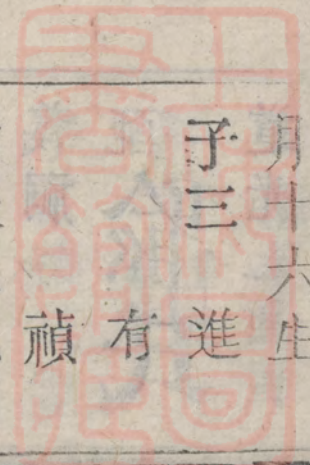 月十六生
子三 進
有
禎